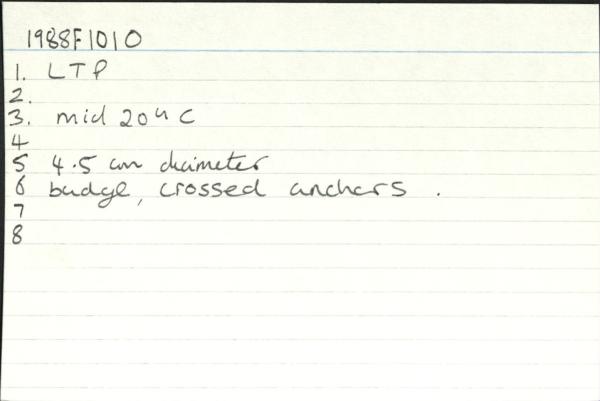 1988F1010
1. LTP
2.
3. mid 20th C
4
5 4.5 cm diameter
6 badge, crossed anchors .
7
8